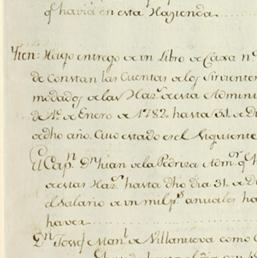 q.e havia en esta Hazienda.
Yten: Hago entrego de un Libro de Caxa n.º
de constan las Cuentas de los Sirvientes
modados de las Haz.s de esta Admini
de 1.º de Enero de 1782. hasta 31. de D
de dho año. Cuio estado es el siguiente
El Cap.n D.n Juan de la Pedroza Adm.or q.e
de estas Haz.s hasta dho dia 31. de D
el salario de un mil p.s anuales ha
haver
D.n Josef Man.l de Villanueva como C